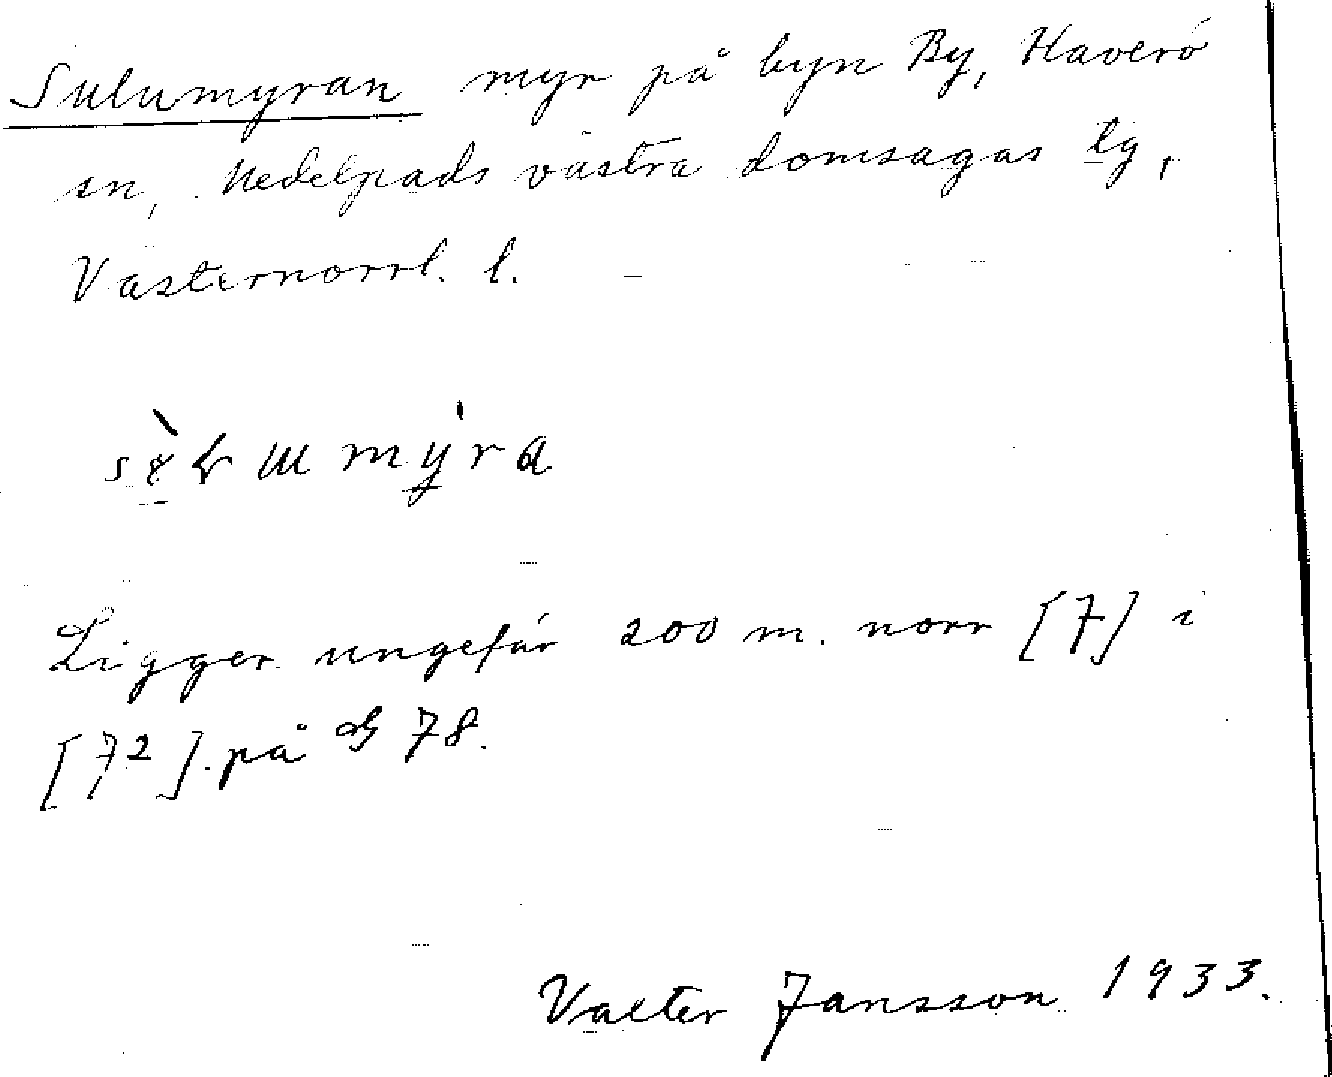 Sulumyran myr på byn By, Haverö
sn, Medelpads västra domsagas tg,
Västernorrl. l.
Ligger ungefär 200 m. norr [7] i
[72]. på G 78.
Valter Jansson 1933.